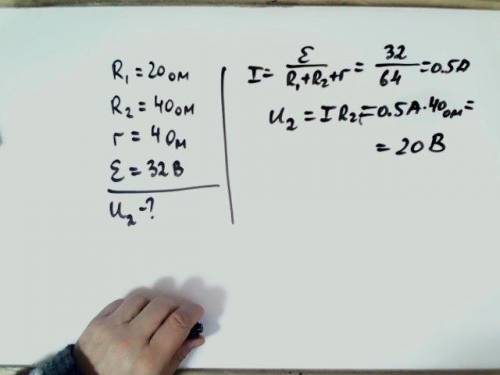 R₁ = 20 Ом
R₂ = 40 Ом
r = 4 Ом
Ɛ = 32 В
U₂ - ?
I = Ɛ / (R₁+R₂+r) = 32 / 64 = 0.5 А
U₂ = I R₂ = 0.5 А · 40 Ом =
= 20 В